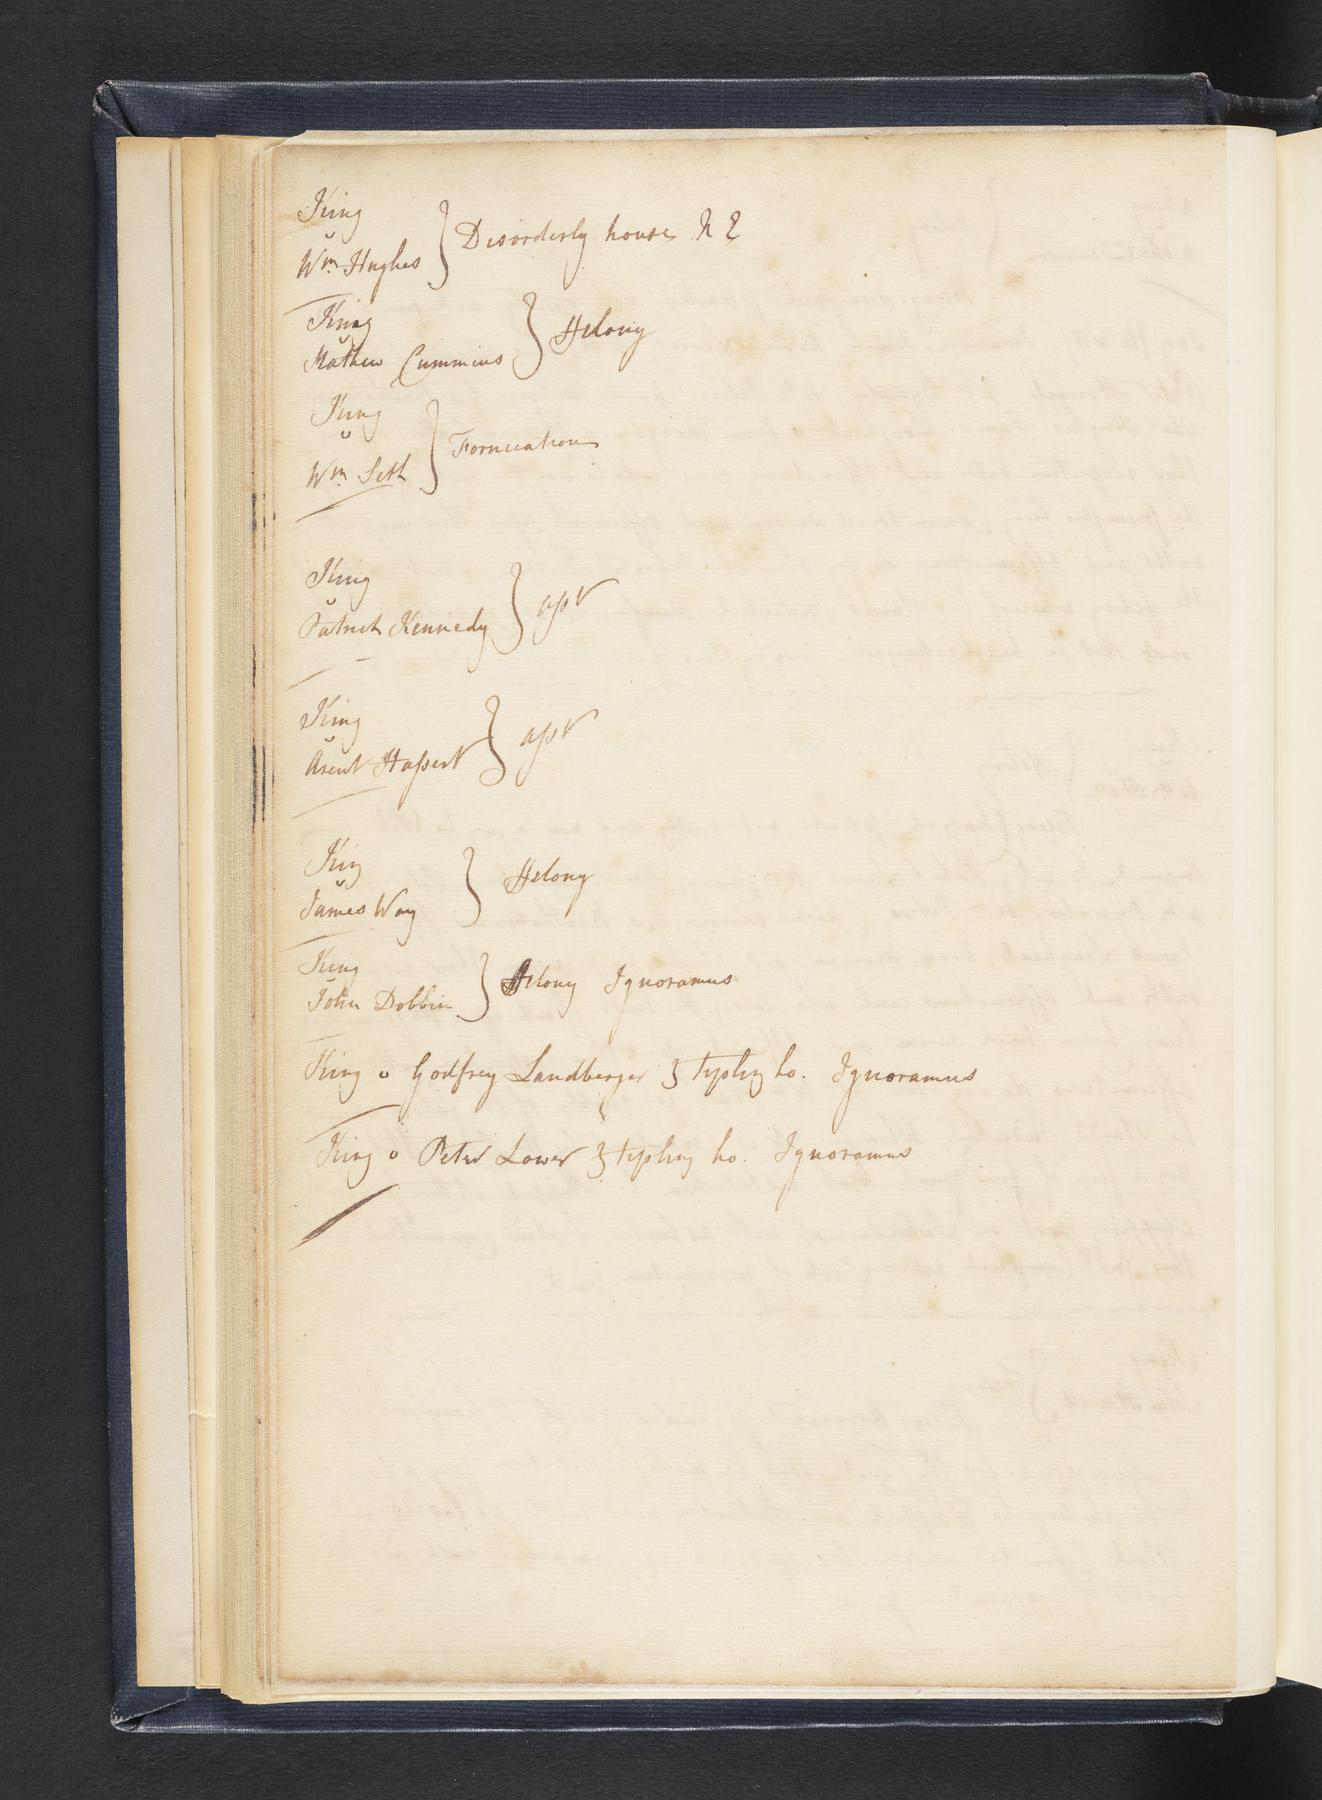 King
v
Wm Hughes } Disorderly house N E
King
v
Mathew Cummins } Felony
King
v
Wm Seth } Fornication
King
v
Patrick Kennedy } asst
King
v
Arent Hassert } asst
King
v
James Way } Felony
King
v
John Dobbin } Felony Ignoramus
King v Godfrey Landberger } tipling ho. Ignoramus
King v Peter Lower } tipling ho. Ignoramus